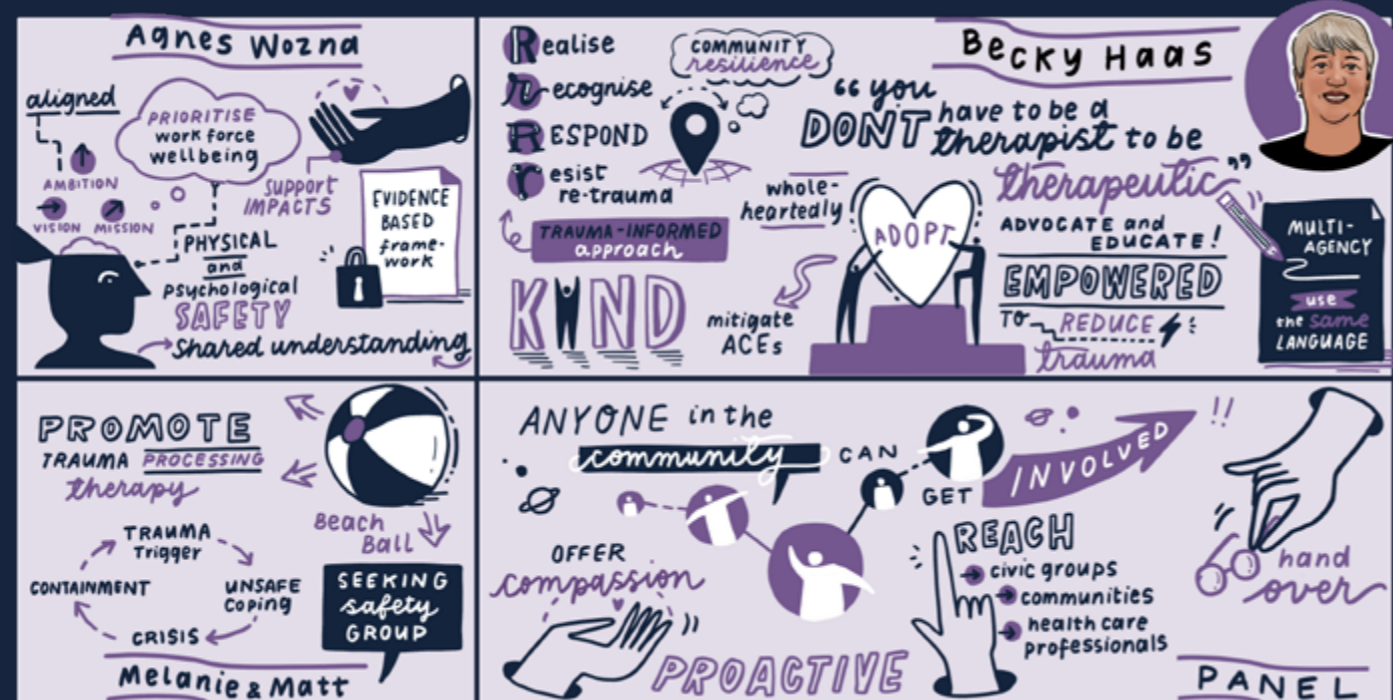 Agnes Wozna
aligned
AMBITION
VISION
MISSION
PRIORITISE
work force
wellbeing
support
IMPACTS
EVIDENCE
BASED
frame-
work
PHYSICAL
and
psychological
SAFETY
Shared understanding
Realise
recognise
RESPOND
resist
re-trauma
TRAUMA-INFORMED
approach
KIND
COMMUNITY
resilience
whole-
heartedly
mitigate
ACEs
ADOPT
Becky Haas
“you
DONT have to be a
therapist to be
therapeutic”
ADVOCATE and
EDUCATE!
EMPOWERED
TO REDUCE
trauma
MULTI-
AGENCY
use
the same
LANGUAGE
PROMOTE
TRAUMA PROCESSING
therapy
Beach
Ball
TRAUMA
Trigger
UNSAFE
Coping
CRISIS
CONTAINMENT
SEEKING
safety
GROUP
Melanie & Matt
ANYONE in the
community CAN
GET
INVOLVED
!!
OFFER
compassion
PROACTIVE
REACH
civic groups
communities
health care
professionals
hand
over
PANEL